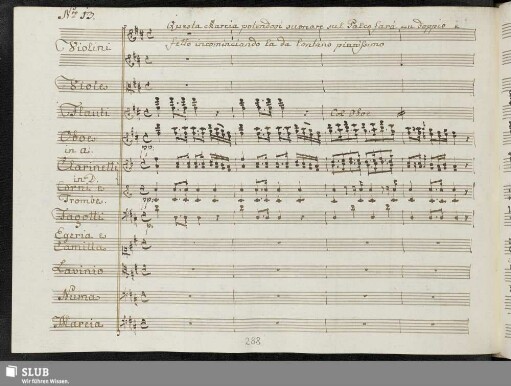 No. 13.
Questa Marcia potendosi suonare sul Palco farà più doppio è
fetto incominciando la da lontano pianissimo
Violini
Viole
Flauti
Col Oboe
Oboe
in a.
Clarinetti
in D.
Corni e
Trombe
Fagotti
Egeria e
Camilla
Lavinio
Numa
Marcia
288
SLUB
Wir führen Wissen.